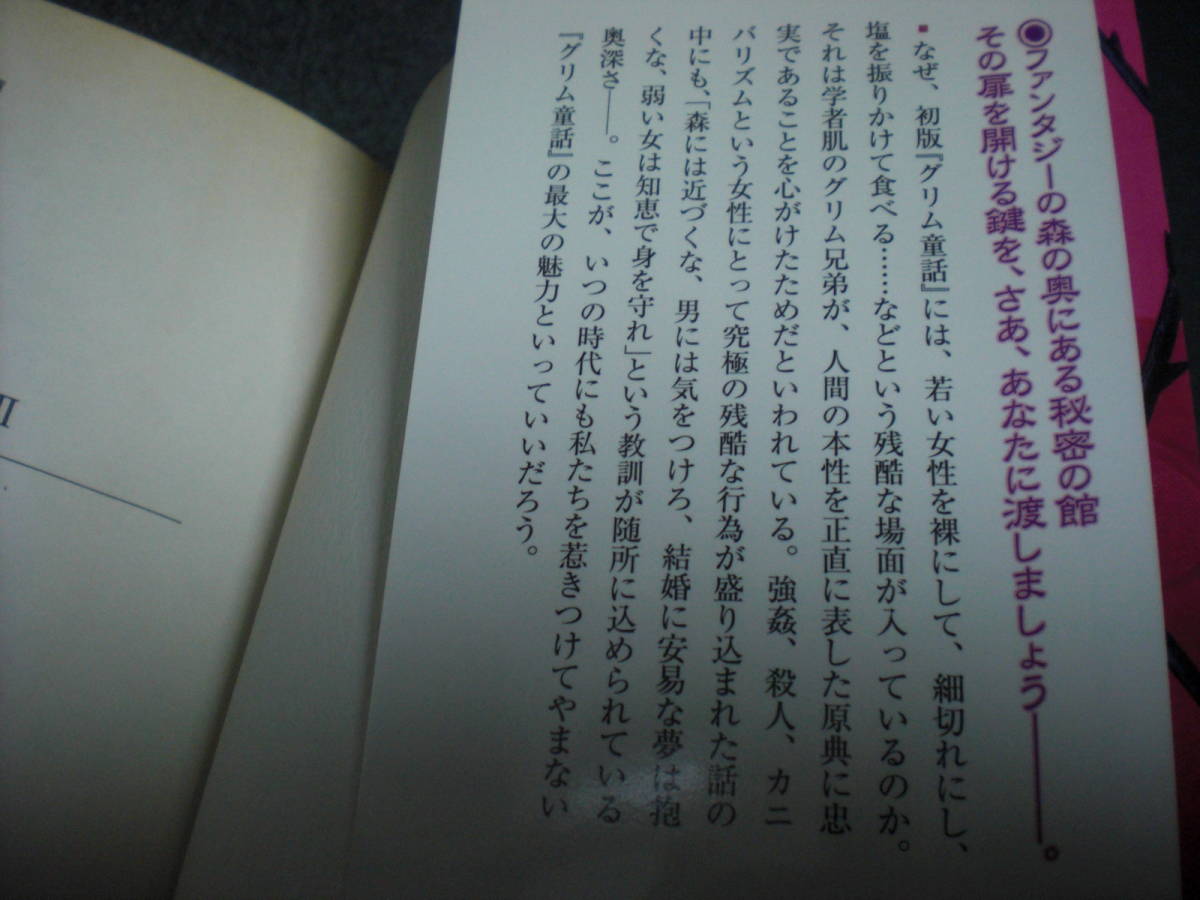 ◉ファンタジーの森の奥にある秘密の館
その扉を開ける鍵を、さあ、あなたに渡しましょう――。
▪なぜ、初版『グリム童話』には、若い女性を裸にして、細切れにし、
塩を振りかけて食べる……などという残酷な場面が入っているのか。
それは学者肌のグリム兄弟が、人間の本性を正直に表した原典に忠
実であることを心がけたためだといわれている。強姦、殺人、カニ
バリズムという女性にとって究極の残酷な行為が盛り込まれた話の
中にも、「森には近づくな、男には気をつけろ、結婚に安易な夢は抱
くな、弱い女は知恵で身を守れ」という教訓が随所に込められている
奥深さ――。ここが、いつの時代にも私たちを惹きつけてやまない
『グリム童話』の最大の魅力といっていいだろう。
II